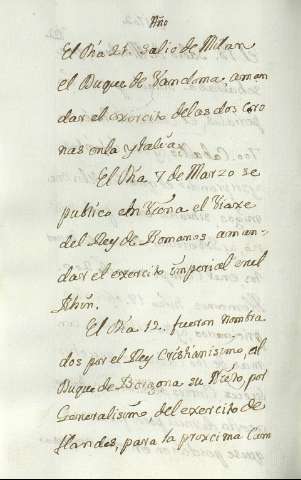 Año
El Dia 21. salio de Milan
el Duque de Vandoma aman
dar el exercito delas dos coro
nas enla ytalia.
El Dia 7 de Marzo se
publico en Viena el Viaxe
del Rey de Romanos aman-
dar el exercito imperial en el
Rhin.
El Dia 12. fueron nombra
dos por el Rey Cristianisimo, el
Duque de Borgoña su Nieto, por
Generalisimo, del exercito de
flandes, para la proxcima Cam